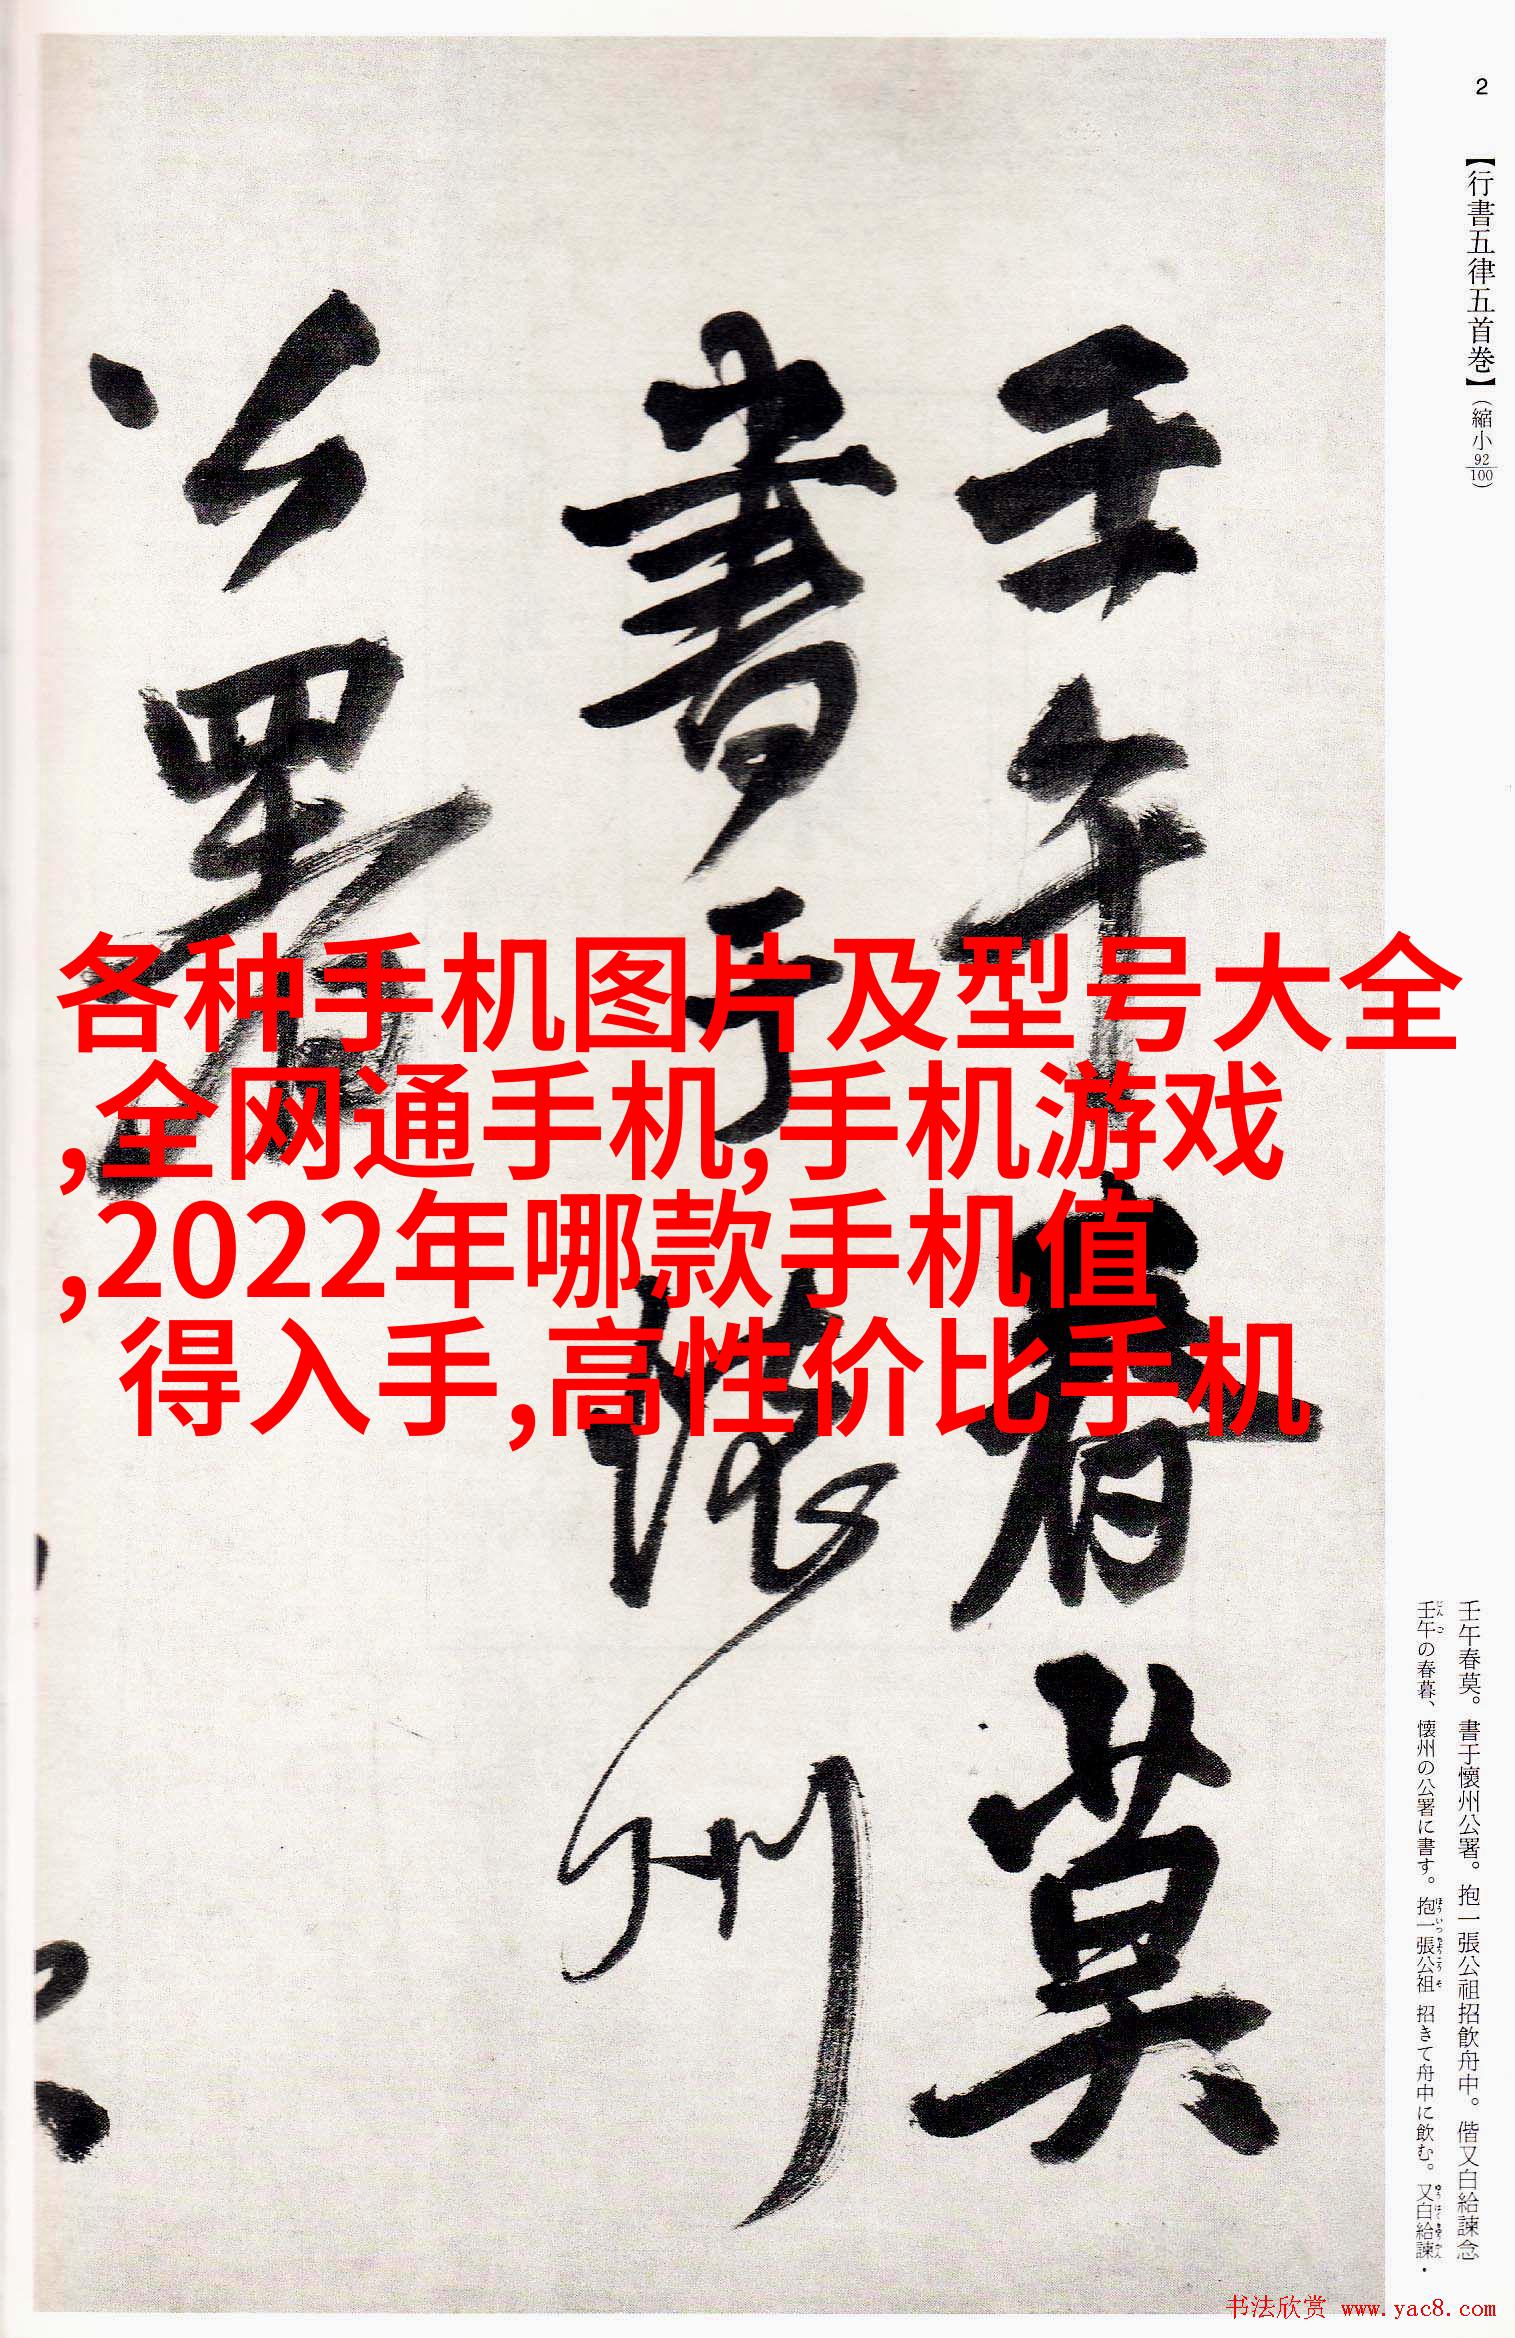 2
【行書五律五首巻】(縮小92/100)
壬午春莫
書于懐州
公署
各种手机图片及型号大全
,全网通手机,手机游戏
,2022年哪款手机值
得入手,高性价比手机
壬午春莫。書于懷州公署。抱一張公祖招飲舟中。偕又白給諫念
壬午の春暮、懐州の公署に書す。抱一張公祖 招きて舟中に飲む。又白給諫・
书法欣赏 www.yac8.com